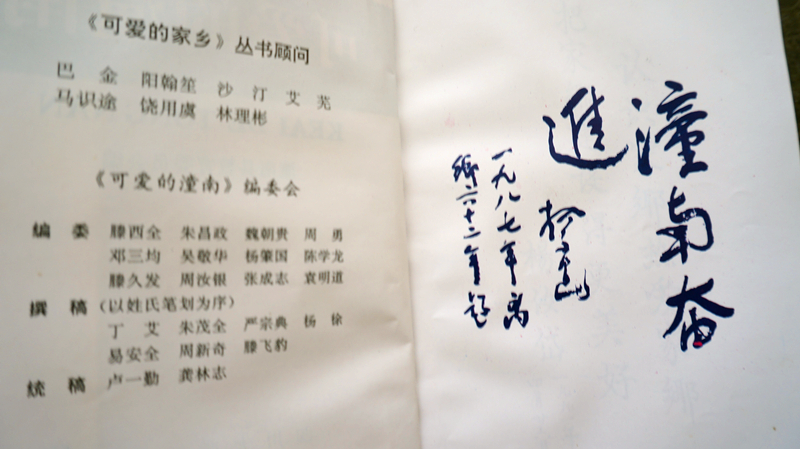 《可爱的家乡》丛书顾问
巴 金 阳翰笙 沙 汀 艾 芜
马识途 饶用虞 林理彬
《可爱的潼南》编委会
编 委 滕西全 朱昌政 魏朝贵 周 勇
邓三均 吴敬华 杨肇国 陈学龙
滕久发 周汝银 张成志 袁明道
撰 稿 (以姓氏笔划为序)
丁 艾 朱茂全 严宗典 杨 徐
易安全 周新奇 滕飞豹
统 稿 卢一勤 龚林志
潼南奋
進 杨尚昆
一九八七年离
鄉六十二年题